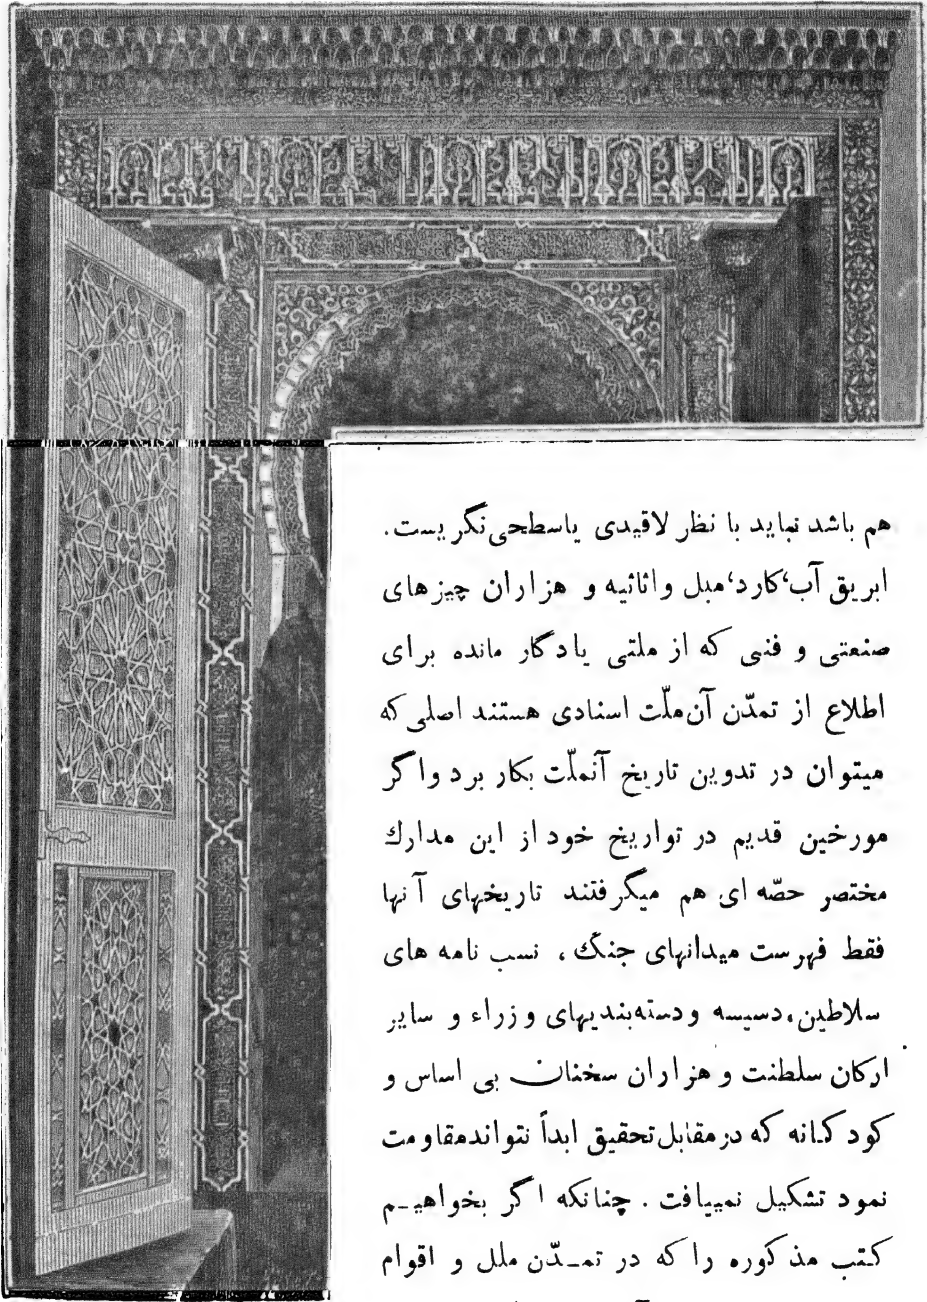 هم باشد نباید با نظر لاقیدی یاسطحی نگریست.
ابریق آب،کارد،مبل واثاثیه و هزاران چیزهای
صنعتی و فنی که از ملتی یادگار مانده برای
اطلاع از تمدّن آن ملّت اسنادی هستند اصلی که
میتوان در تدوین تاریخ آنملّت بکار برد واگر
مورخین قدیم در تواریخ خود از این مدارك
مختصر حصّه ای هم میگرفتند تاریخهای آنها
فقط فهرست میدانهای جنگ ، نسب نامه های
سلاطین،دسیسه ودسته‌بندیهای وزراء و سایر
ارکان سلطنت و هزاران سخنان بی اساس و
کودکانه که درمقابل تحقیق ابداً نتواندمقاومت
نمود تشکیل نمییافت . چنانکه اگر بخواهیـم
کتب مذکوره را که در تمـدّن ملل و اقوام